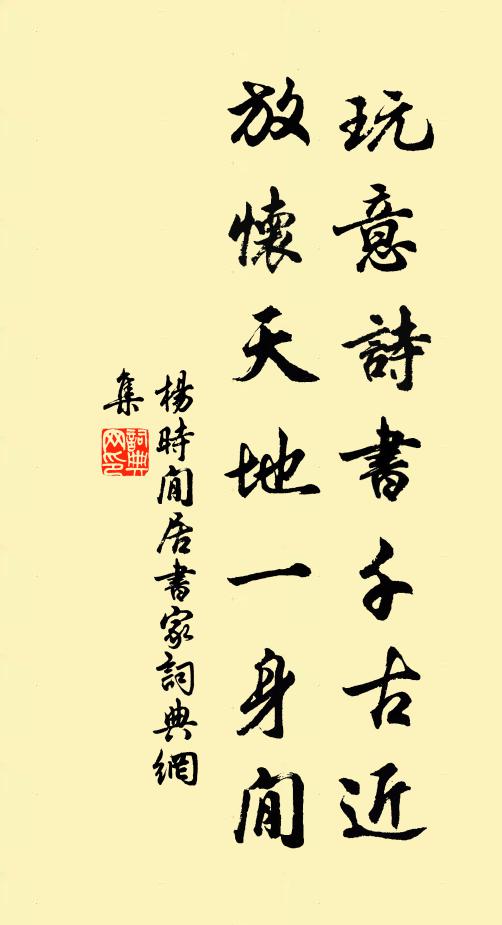 玩意詩書千古近
放懷天地一身閒
楊時閒居書家詞典網
集
詞典
网印